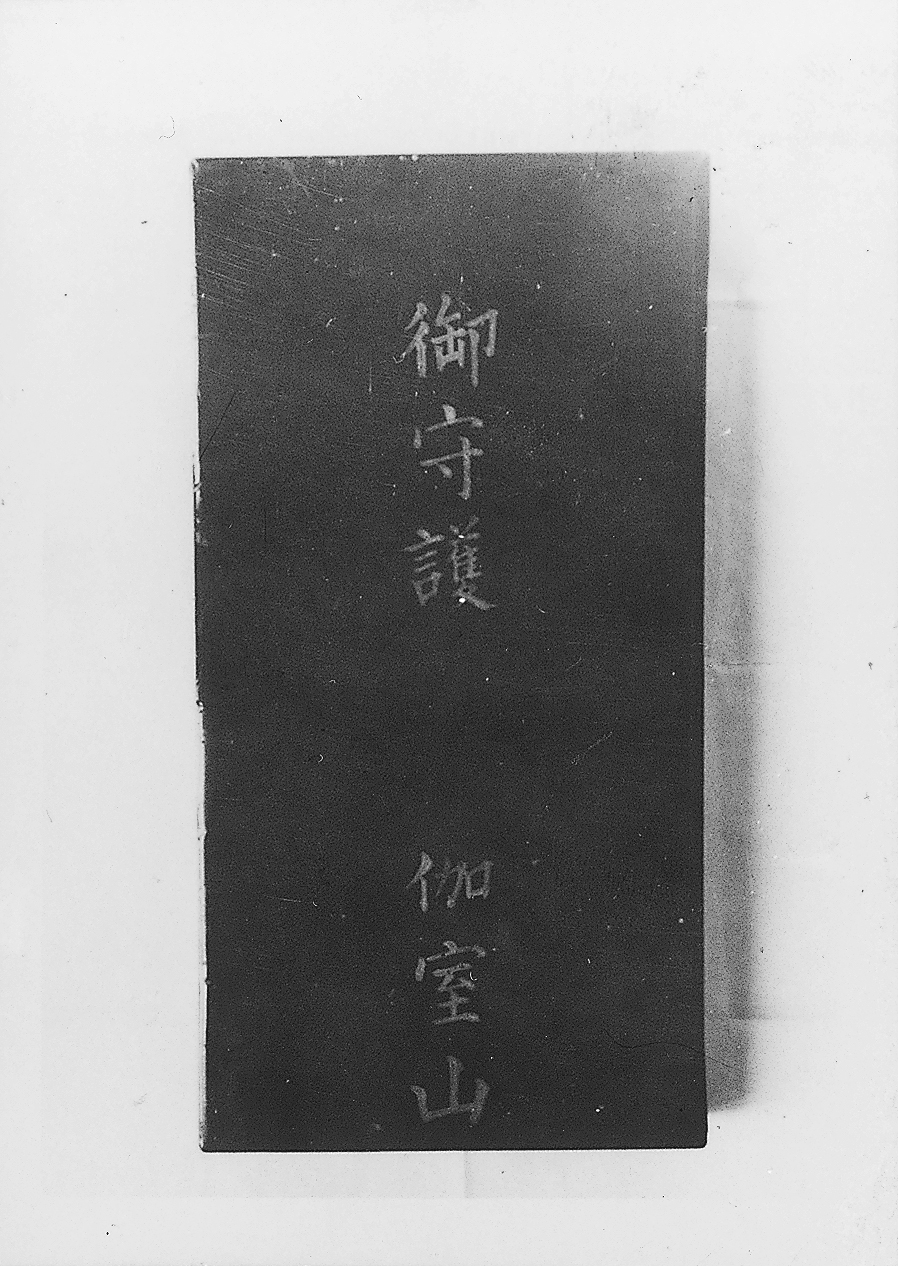 御守護
伽室山